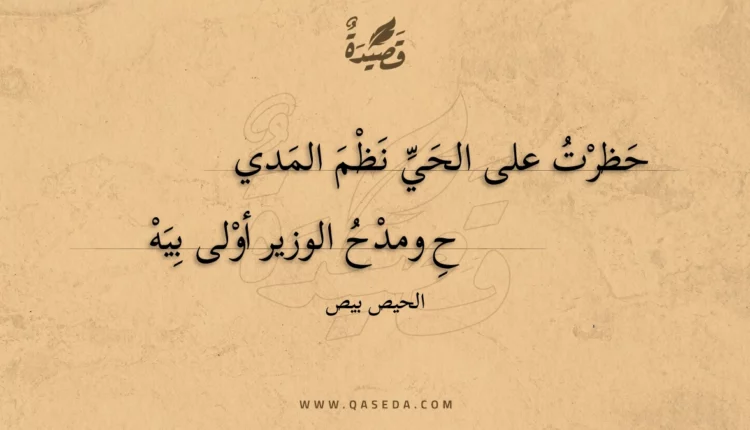 قَصِيْدَةٌ
حَظرْتُ على الحَيِّ نَظْمَ المَدي
حِ ومدْحُ الوزير أوْلى بِيَهْ
الحيص بيص
WWW.QASEDA.COM